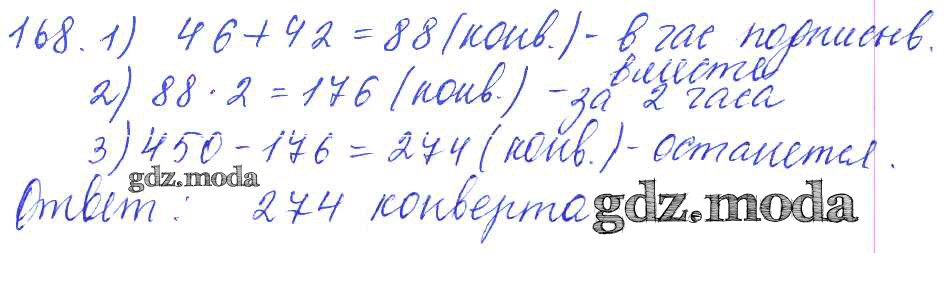 168. 1) 46+42 = 88 (конв.) - в час подписыв.
вместе
2) 88 · 2 = 176 (конв.) - за 2 часа
3) 450 - 176 = 274 (конв.) - останется.
gdz.moda
Ответ: 274 конверта
gdz.moda